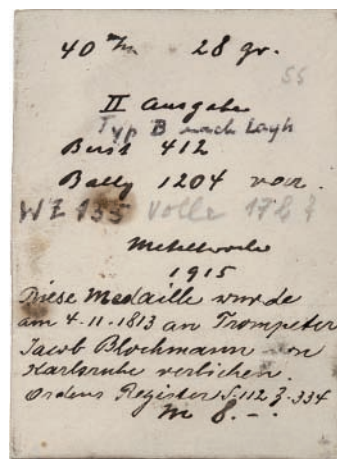 40 m/m 28 gr.
55
II Ausgabe
Typ B nach
Berst 412
Bally 1204 var.
WZ 155 Volle 178 ?
1915
Diese Medaille wurde
am 4.11.1813 an Trompeter
Jacob Blochmann
Karlsruhe verliehen.
Ordens Register S. 112 Z. 334
M 8.-